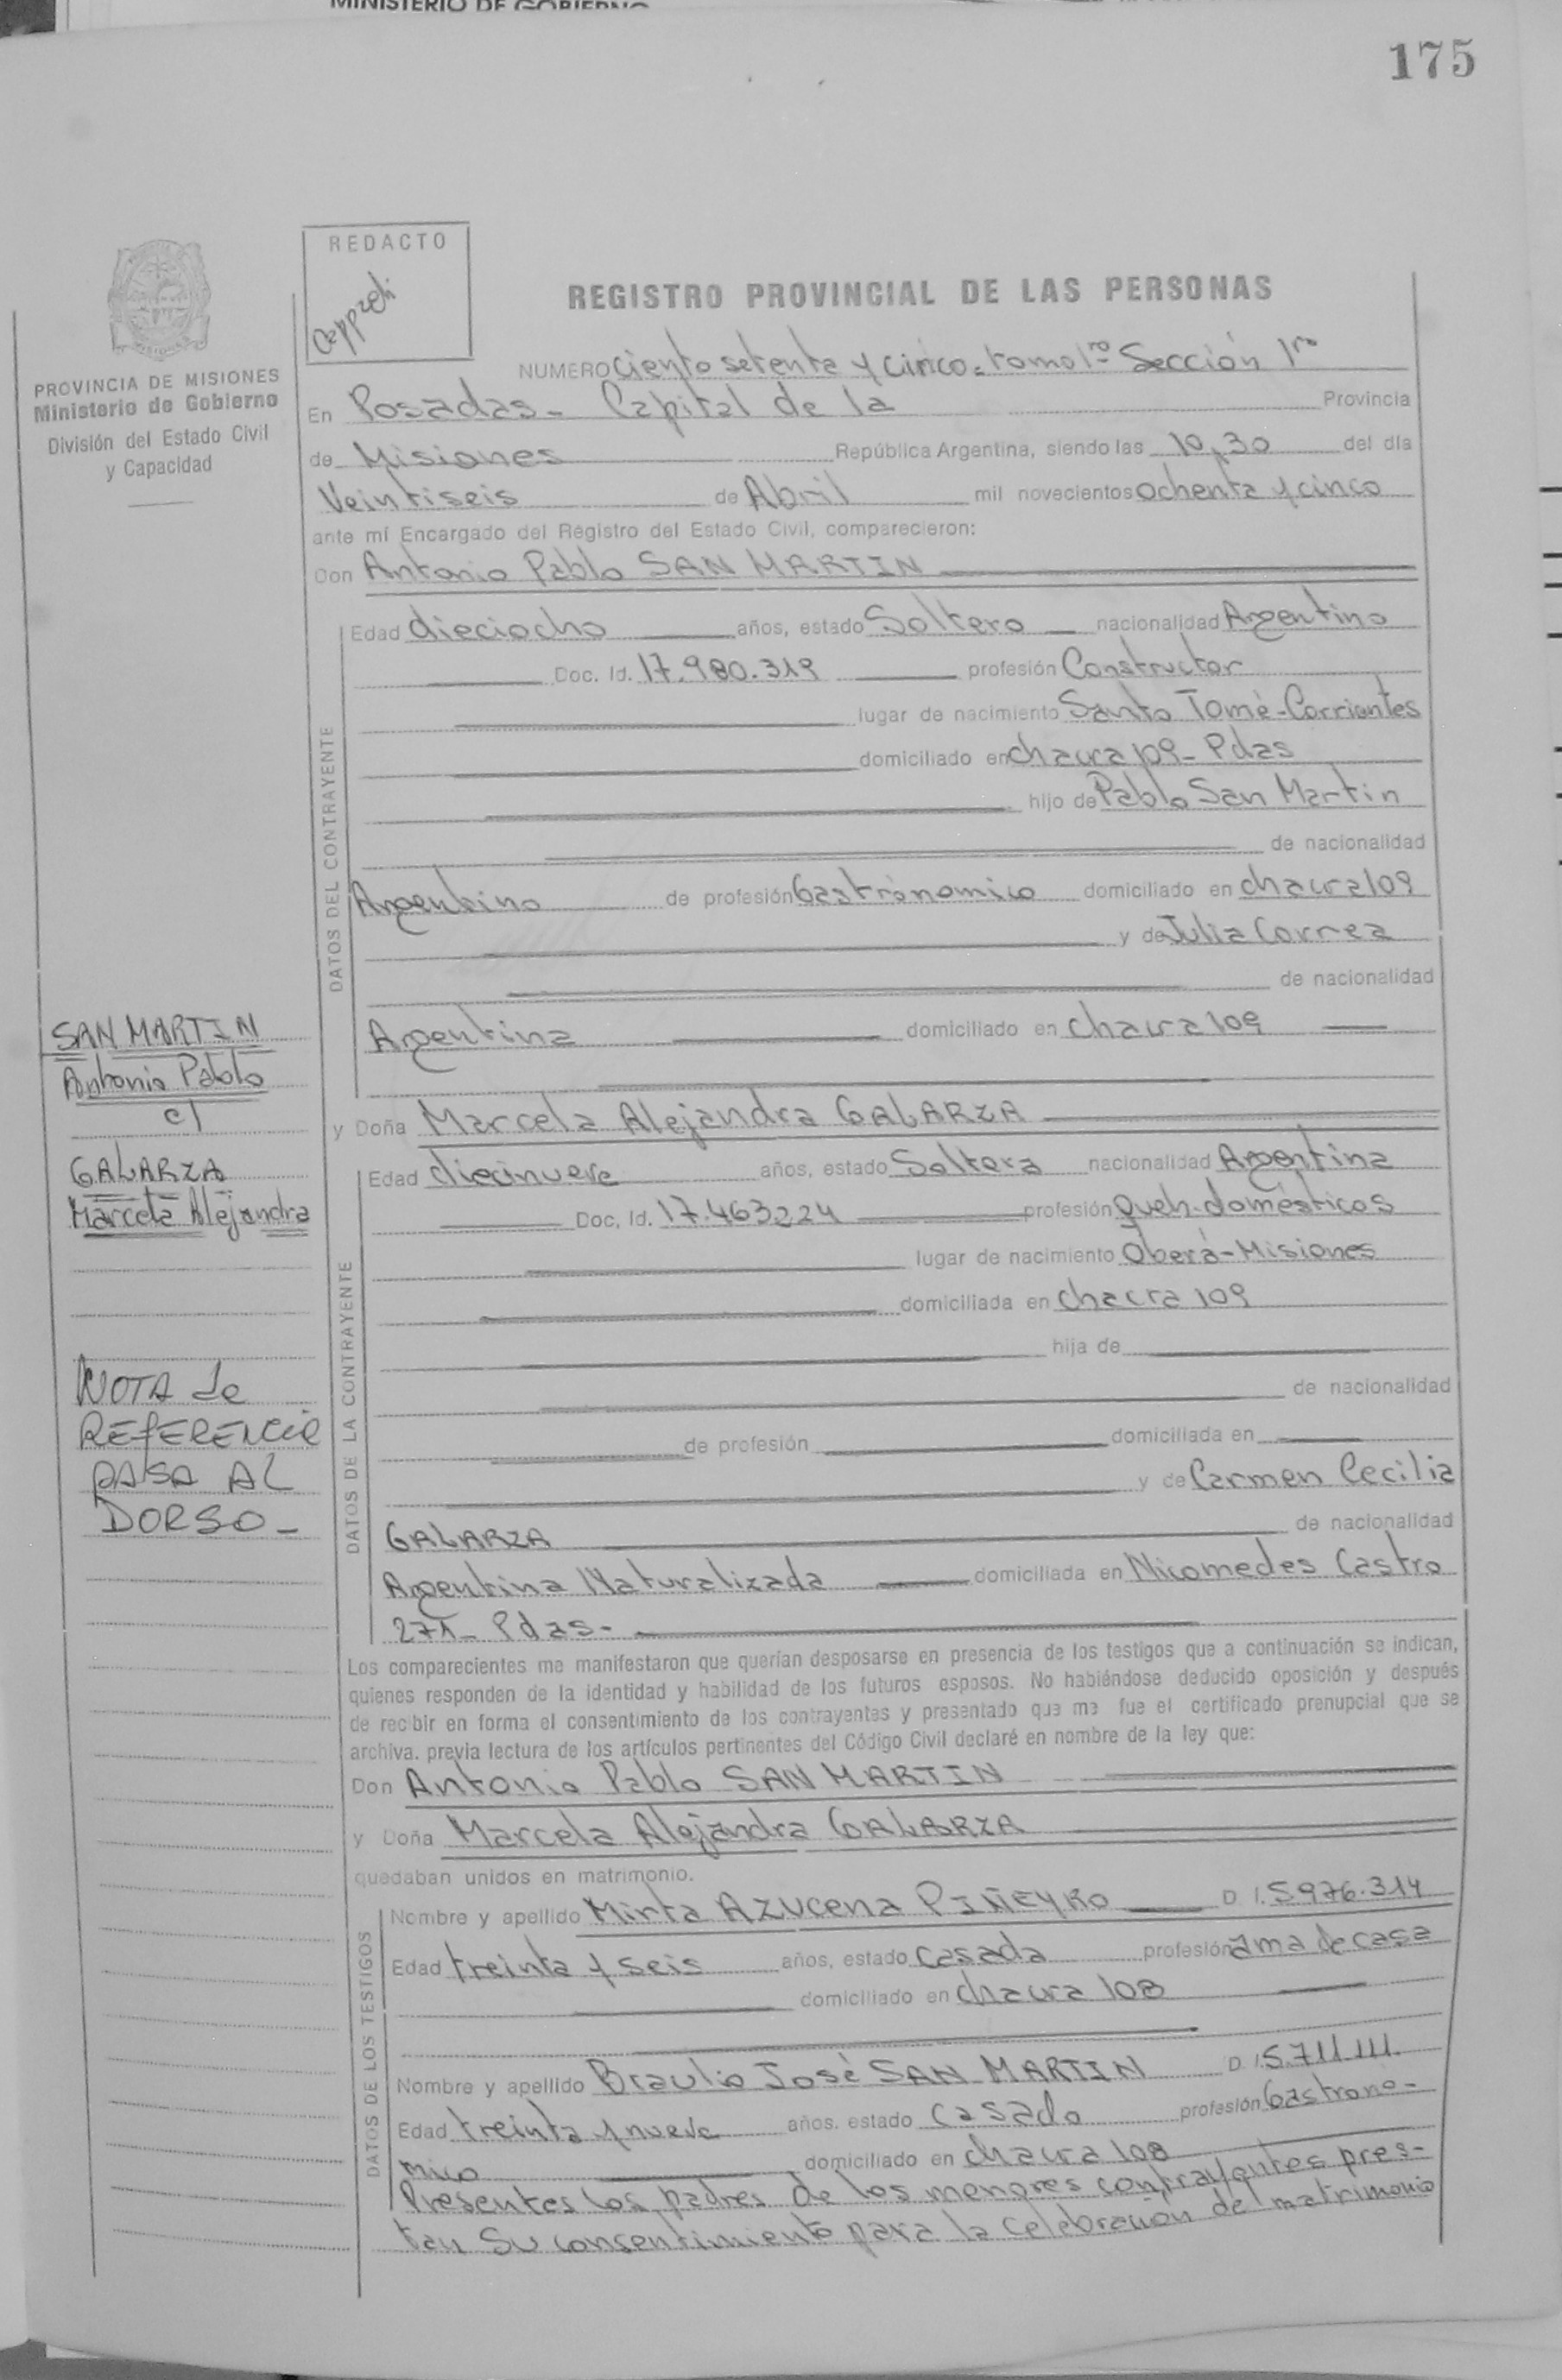 MINISTERIO DE GOBIERNO
175
REDACTO
Cappzeli
PROVINCIA DE MISIONES
Ministerio de Gobierno
División del Estado Civil
y Capacidad
REGISTRO PROVINCIAL DE LAS PERSONAS
NUMERO Ciento setenta y cinco - tomo 1ro Sección 1ra
En Posadas - Capital de la Provincia
de Misiones República Argentina, siendo las 10,30 del día
Veintiseis de Abril mil novecientos ochenta y cinco
ante mí Encargado del Registro del Estado Civil, comparecieron:
Don Antonio Pablo SAN MARTIN
DATOS DEL CONTRAYENTE
Edad dieciocho años, estado Soltero nacionalidad Argentino
Doc. Id. 17.980.319 profesión Constructor
lugar de nacimiento Santo Tomé - Corrientes
domiciliado en chacra 109 - Pdas
hijo de Pablo San Martin
de nacionalidad
Argentino de profesión Gastrónomico domiciliado en chacra 109
y de Julia Correa
de nacionalidad
Argentina domiciliado en chacra 109
SAN MARTIN
Antonio Pablo
c/
GALARZA
Marcela Alejandra
NOTA de
REFERENCIA
PASA AL
DORSO -
y Doña Marcela Alejandra GALARZA
DATOS DE LA CONTRAYENTE
Edad diecinueve años, estado Soltera nacionalidad Argentina
Doc, Id. 17.463224 profesión queh. domésticos
lugar de nacimiento Oberá - Misiones
domiciliada en chacra 109
hija de
de nacionalidad
de profesión domiciliada en
y de Carmen Cecilia
GALARZA de nacionalidad
Argentina Naturalizada domiciliada en Nicomedes Castro
271 - Pdas -
Los comparecientes me manifestaron que querían desposarse en presencia de los testigos que a continuación se indican,
quienes responden de la identidad y habilidad de los futuros esposos. No habiéndose deducido oposición y después
de recibir en forma el consentimiento de los contrayentes y presentado que me fue el certificado prenupcial que se
archiva. previa lectura de los artículos pertinentes del Código Civil declaré en nombre de la ley que:
Don Antonio Pablo SAN MARTIN
y Doña Marcela Alejandra GALARZA
quedaban unidos en matrimonio.
DATOS DE LOS TESTIGOS
Nombre y apellido Mirta AZUCENA PIÑEYRO D I. 5976.314
Edad treinta y seis años, estado casada profesión ama de casa
domiciliado en chacra 108
Nombre y apellido Braulio José SAN MARTIN D I. 5.711.111.
Edad treinta y nueve años. estado casado profesión Gastrono-
mico domiciliado en chacra 108
Presentes los padres de los menores contrayentes pres-
tan su consentimiento para la celebración del matrimonio